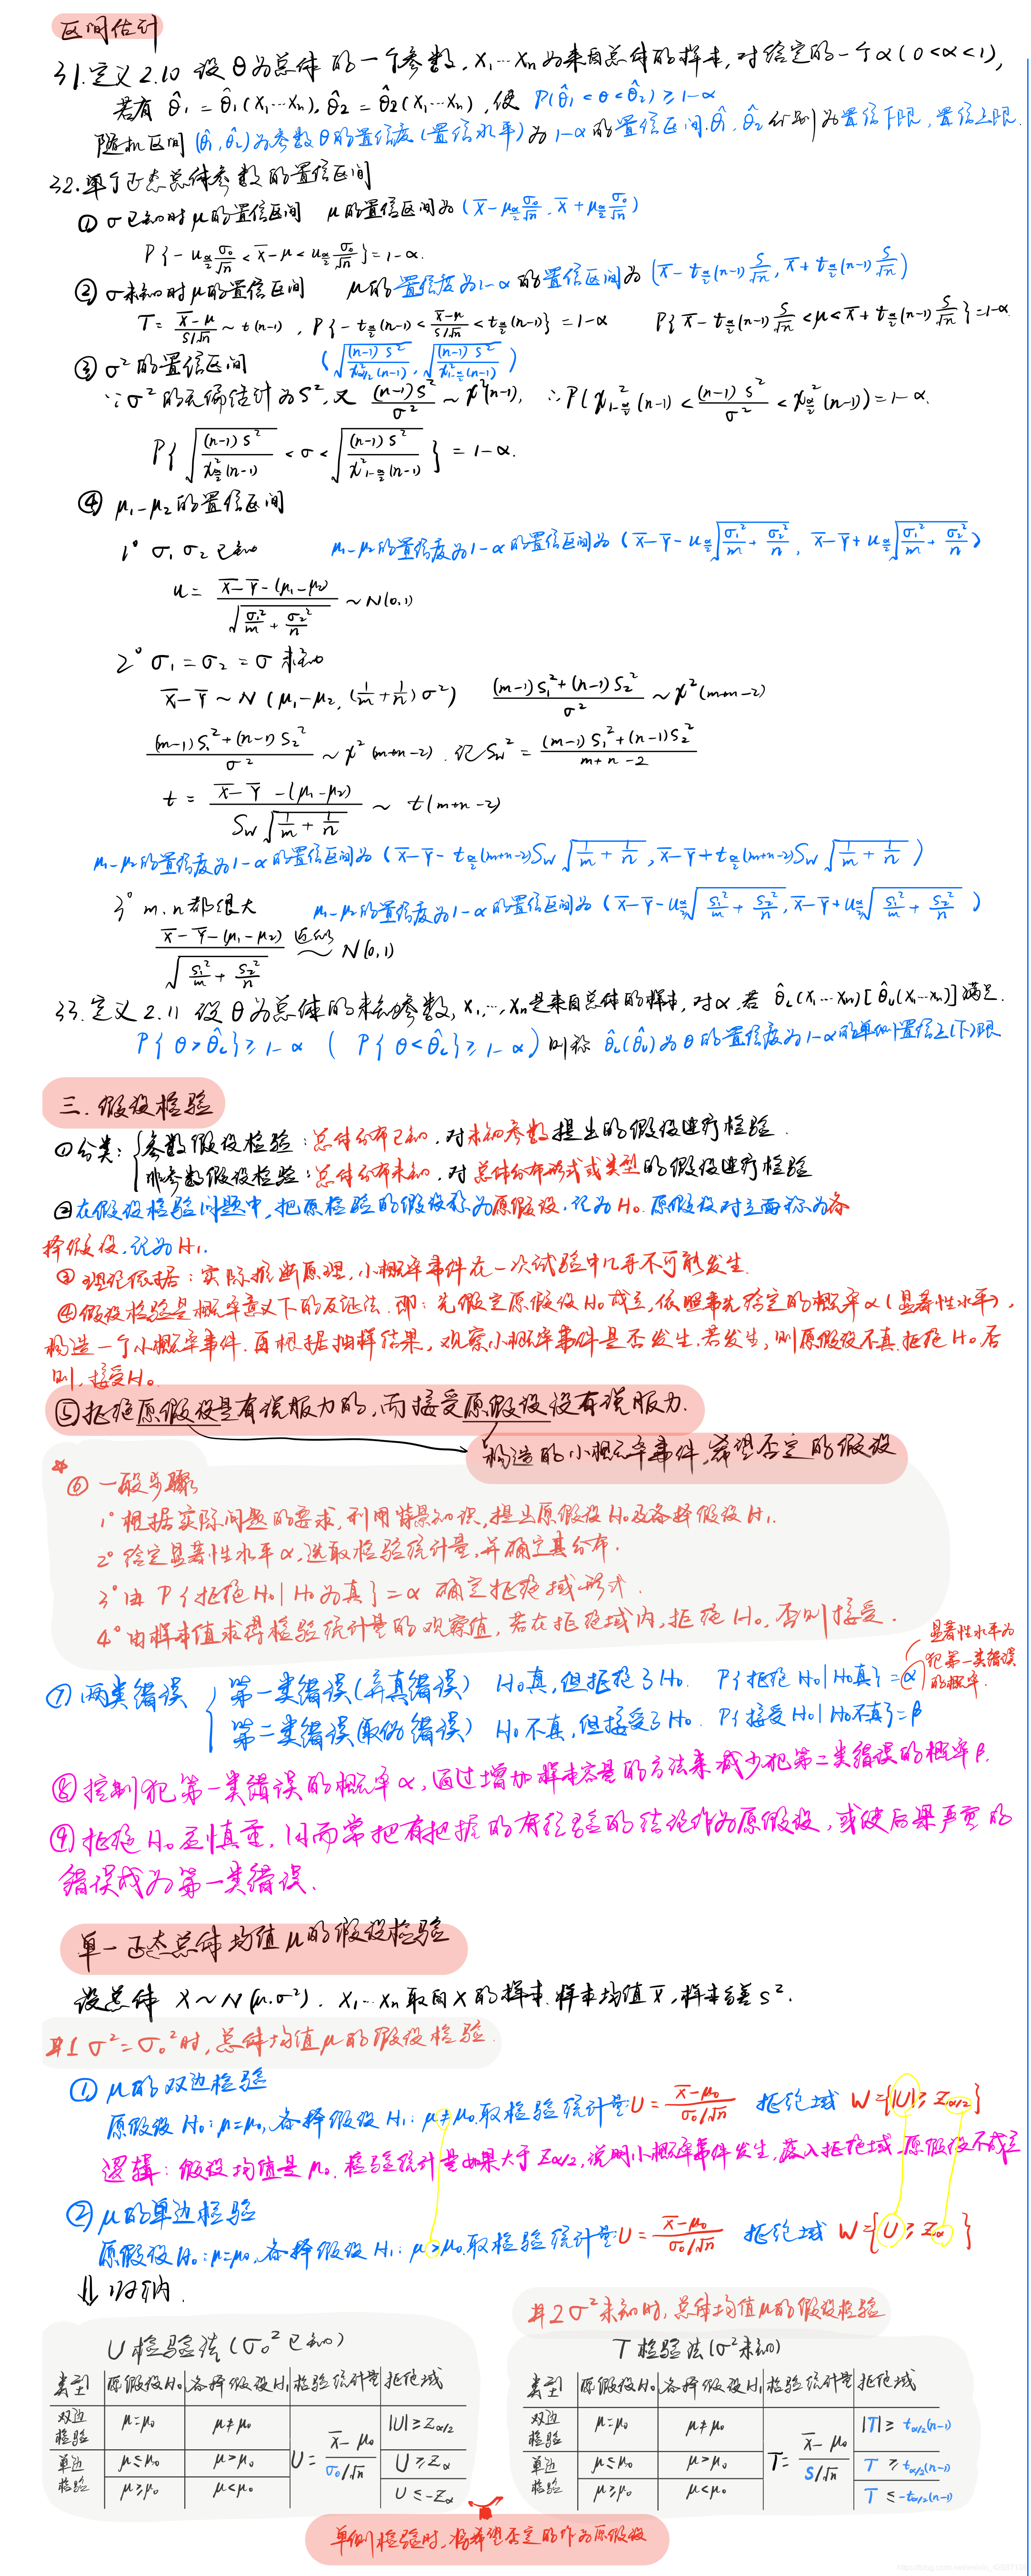 区间估计
31.定义2.10 设θ为总体的一个参数, X₁…Xn为来自总体的样本, 对给定的一个α(0<α<1),
若有 θ̂₁=θ̂₁(X₁…Xn), θ̂₂=θ̂₂(X₁…Xn), 使 P(θ̂₁<θ<θ̂₂)≥1-α
随机区间(θ̂₁,θ̂₂)为参数θ的置信度(置信水平)为1-α的置信区间.θ̂₁,θ̂₂分别为置信下限,置信上限.
32.单个正态总体参数的置信区间
① σ已知时μ的置信区间 μ的置信区间为(X̄-μα/2 σ₀/√n, X̄+μα/2 σ₀/√n)
P{-uα/2 σ₀/√n < X̄-μ < uα/2 σ₀/√n}=1-α.
② σ未知时μ的置信区间 μ的置信度为1-α的置信区间为(X̄-tα/2(n-1) S/√n, X̄+tα/2(n-1) S/√n)
T=(X̄-μ)/(S/√n)~t(n-1), P{-tα/2(n-1)<(X̄-μ)/(S/√n)<tα/2(n-1)}=1-α P{X̄-tα/2(n-1) S/√n<μ<X̄+tα/2(n-1) S/√n}=1-α
③ σ²的置信区间 (√((n-1)S²/χ²α/2(n-1)), √((n-1)S²/χ²1-α/2(n-1)))
∵σ²的无偏估计为S²,又 (n-1)S²/σ² ~ χ²(n-1), ∴P(χ²1-α/2(n-1)<(n-1)S²/σ²<χ²α/2(n-1))=1-α.
P{√((n-1)S²/χ²α/2(n-1)) < σ < √((n-1)S²/χ²1-α/2(n-1))}=1-α.
④ μ₁-μ₂的置信区间
1° σ₁ σ₂已知 μ₁-μ₂的置信度为1-α的置信区间为(X̄-Ȳ-uα/2√(σ₁²/m+σ₂²/n), X̄-Ȳ+uα/2√(σ₁²/m+σ₂²/n))
u=(X̄-Ȳ-(μ₁-μ₂))/√(σ₁²/m+σ₂²/n) ~N(0,1)
2° σ₁=σ₂=σ未知
X̄-Ȳ~N(μ₁-μ₂,(1/m+1/n)σ²) ((m-1)S₁²+(n-1)S₂²)/σ² ~χ²(m+n-2)
((m-1)S₁²+(n-1)S₂²)/σ² ~χ²(m+n-2). 记Sw²=((m-1)S₁²+(n-1)S₂²)/(m+n-2)
t=(X̄-Ȳ-(μ₁-μ₂))/(Sw√(1/m+1/n)) ~ t(m+n-2)
μ₁-μ₂的置信度为1-α的置信区间为(X̄-Ȳ-tα/2(m+n-2)Sw√(1/m+1/n), X̄-Ȳ+tα/2(m+n-2)Sw√(1/m+1/n))
3° m.n都很大 μ₁-μ₂的置信度为1-α的置信区间为(X̄-Ȳ-uα/2√(S₁²/m+S₂²/n), X̄-Ȳ+uα/2√(S₁²/m+S₂²/n))
(X̄-Ȳ-(μ₁-μ₂))/√(S₁²/m+S₂²/n) 近似~ N(0,1)
33.定义2.11 设θ为总体的未知参数, X₁,…,Xn是来自总体的样本, 对α,若 θ̂L(X₁…Xn)[θ̂U(X₁…Xn)]满足.
P{θ>θ̂L}≥1-α (P{θ<θ̂L}≥1-α)则称 θ̂L(θ̂U)为θ的置信度为1-α的单侧置信上(下)限
三.假设检验
①分类:{参数假设检验:总体分布已知,对未知参数提出的假设进行检验.
非参数假设检验:总体分布未知,对总体分布形式或类型的假设进行检验
②在假设检验问题中,把原检验的假设称为原假设.记为H₀.原假设对立面称为备
择假设,记为H₁.
③理论依据:实际推断原理,小概率事件在一次试验中几乎不可能发生.
④假设检验是概率意义下的反证法.即:先假定原假设H₀成立,依照事先给定的概率α(显著性水平),
构造一个小概率事件.再根据抽样结果,观察小概率事件是否发生.若发生,则原假设不真.拒绝H₀.否
则,接受H₀.
⑤拒绝原假设是有说服力的,而接受原假设没有说服力.
构造的小概率事件,希望否定的假设
⑥一般步骤
1°根据实际问题的要求,利用背景知识,提出原假设H₀及备择假设H₁.
2°给定显著性水平α,选取检验统计量,并确定其分布.
3°由P{拒绝H₀|H₀为真}=α确定拒绝域形式.
4°由样本值求得检验统计量的观察值,若在拒绝域内,拒绝H₀,否则接受.
显著性水平为
犯第一类错误
的概率.
⑦两类错误{第一类错误(弃真错误) H₀真,但拒绝了H₀. P{拒绝H₀|H₀真}=α
第二类错误(取伪错误) H₀不真,但接受了H₀. P{接受H₀|H₀不真}=β
⑧控制犯第一类错误的概率α,通过增加样本容量的方法来减少犯第二类错误的概率β.
⑨拒绝H₀应慎重,因而常把有把握的有经验的结论作为原假设,或使后果严重的
错误成为第一类错误.
单一正态总体均值μ的假设检验
设总体 X~N(μ,σ²). X₁…Xn取自X的样本.样本均值X̄,样本方差S².
#1 σ²=σ₀²时,总体均值μ的假设检验.
①μ的双边检验
原假设H₀:μ=μ₀,备择假设H₁:μ≠μ₀.取检验统计量:U=(X̄-μ₀)/(σ₀/√n) 拒绝域 W={|U|≥Zα/2}
逻辑:假设均值是μ₀.检验统计量如果大于Zα/2,说明小概率事件发生,落入拒绝域.原假设不成立
②μ的单边检验
原假设H₀:μ=μ₀,备择假设H₁:μ>μ₀.取检验统计量:U=(X̄-μ₀)/(σ₀/√n) 拒绝域 W={U≥Zα}
⇓归纳.
#2 σ²未知时,总体均值μ的假设检验
U检验法(σ₀²已知)
类型 原假设H₀ 备择假设H₁ 检验统计量 拒绝域
双边检验 μ=μ₀ μ≠μ₀ U=(X̄-μ₀)/(σ₀/√n) |U|≥Zα/2
单边检验 μ≤μ₀ μ>μ₀ U≥Zα
μ≥μ₀ μ<μ₀ U≤-Zα
T检验法(σ²未知)
类型 原假设H₀ 备择假设H₁ 检验统计量 拒绝域
双边检验 μ=μ₀ μ≠μ₀ T=(X̄-μ₀)/(S/√n) |T|≥tα/2(n-1)
单边检验 μ≤μ₀ μ>μ₀ T≥tα/2(n-1)
μ≥μ₀ μ<μ₀ T≤-tα/2(n-1)
单侧检验时,将希望否定的作为原假设